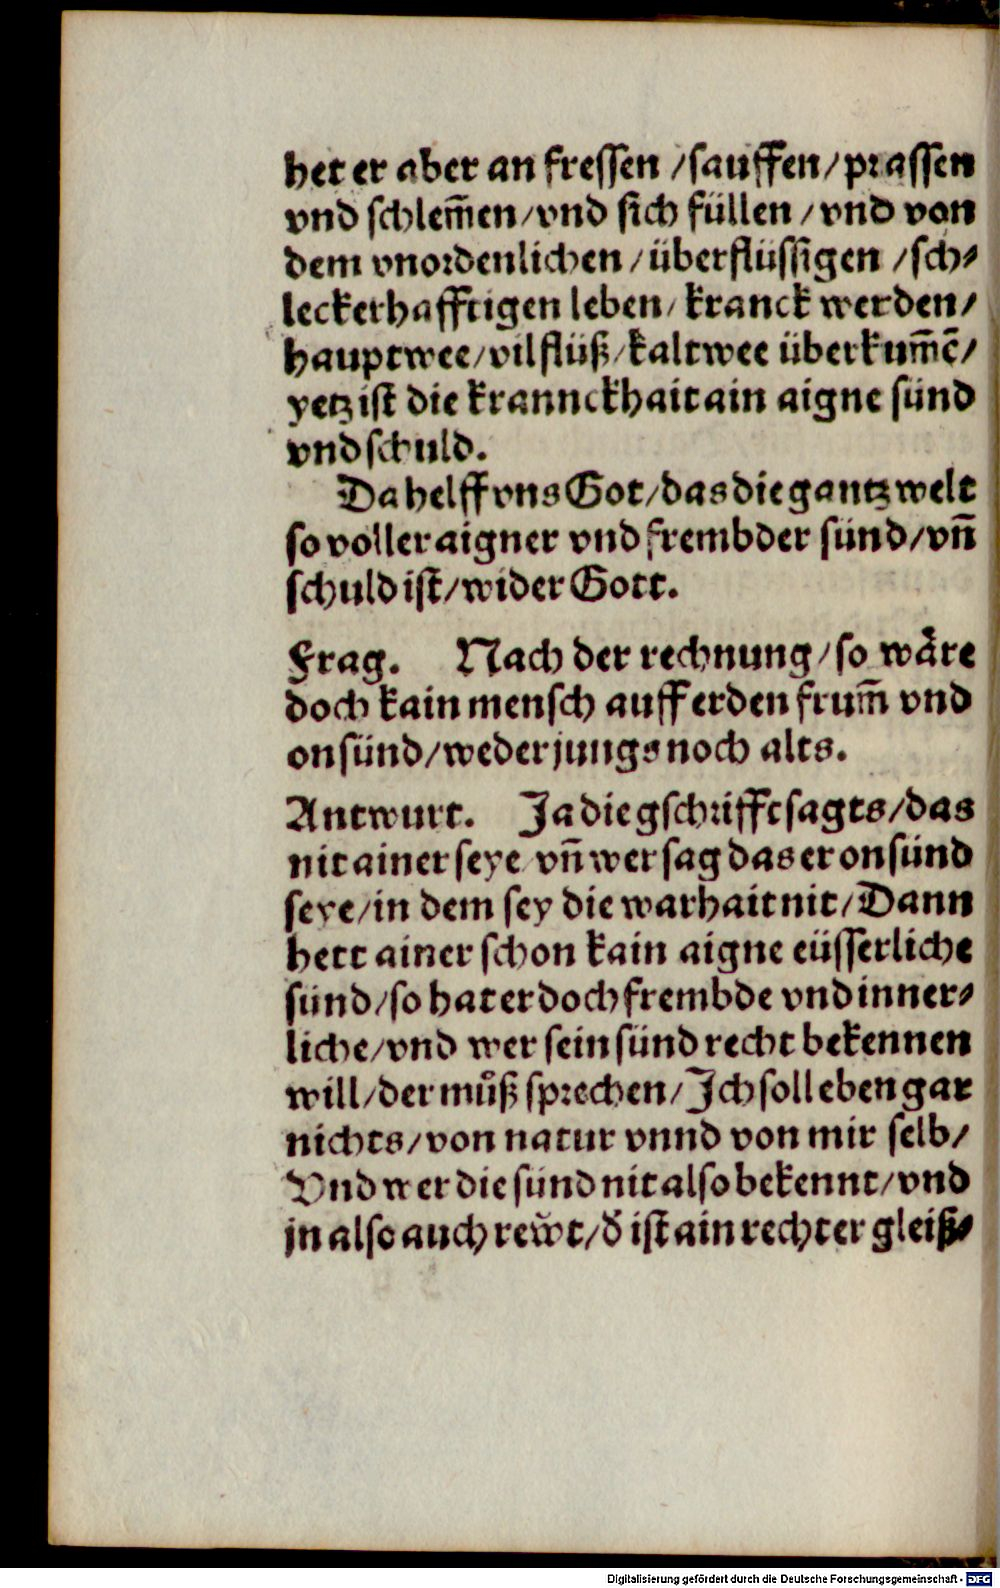 het er aber an fressen /sauffen/prassen
vnd schlem̃en/vnd sich füllen /vnd von
dem vnordenlichen/überflüssigen /sch⸗
leckerhafftigen leben/kranck werden/
hauptwee/vil flüß/kaltwee überkum̃ẽ/
yetz ist die krannckhait ain aigne sünd
vnd schuld.
Da helff vns Got/das die gantz welt
so voller aigner vnd frembder sünd/vñ
schuld ist/wider Gott.
Frag. Nach der rechnung/so wäre
doch kain mensch auff erden frum̃ vnd
on sünd/weder jungs noch alts.
Antwurt. Ja die gschrifft sagts/das
nit ainer seye vñ wer sag das er on sünd
seye/in dem sey die warhait nit/Dann
hett ainer schon kain aigne eüsserliche
sünd/so hat er doch frembde vnd inner⸗
liche/vnd wer sein sünd recht bekennen
will/der můß sprechen/Ich soll eben gar
nichts/von natur vnnd von mir selb/
Vnd wer die sünd nit also bekennt/vnd
jn also auch rewͤt/d̕ ist ain rechter gleiß⸗
Digitalisierung gefördert durch die Deutsche Forschungsgemeinschaft - DFG